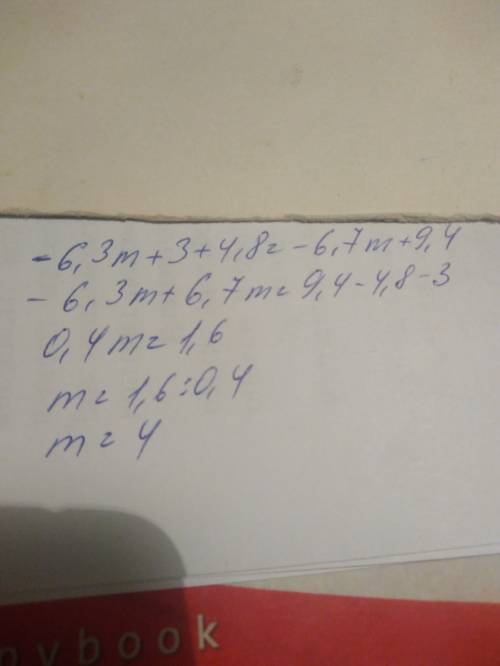 -6,3m+3+4,8=-6,7m+9,4
-6,3m+6,7m=9,4-4,8-3
0,4m=1,6
m=1,6:0,4
m=4
pybook